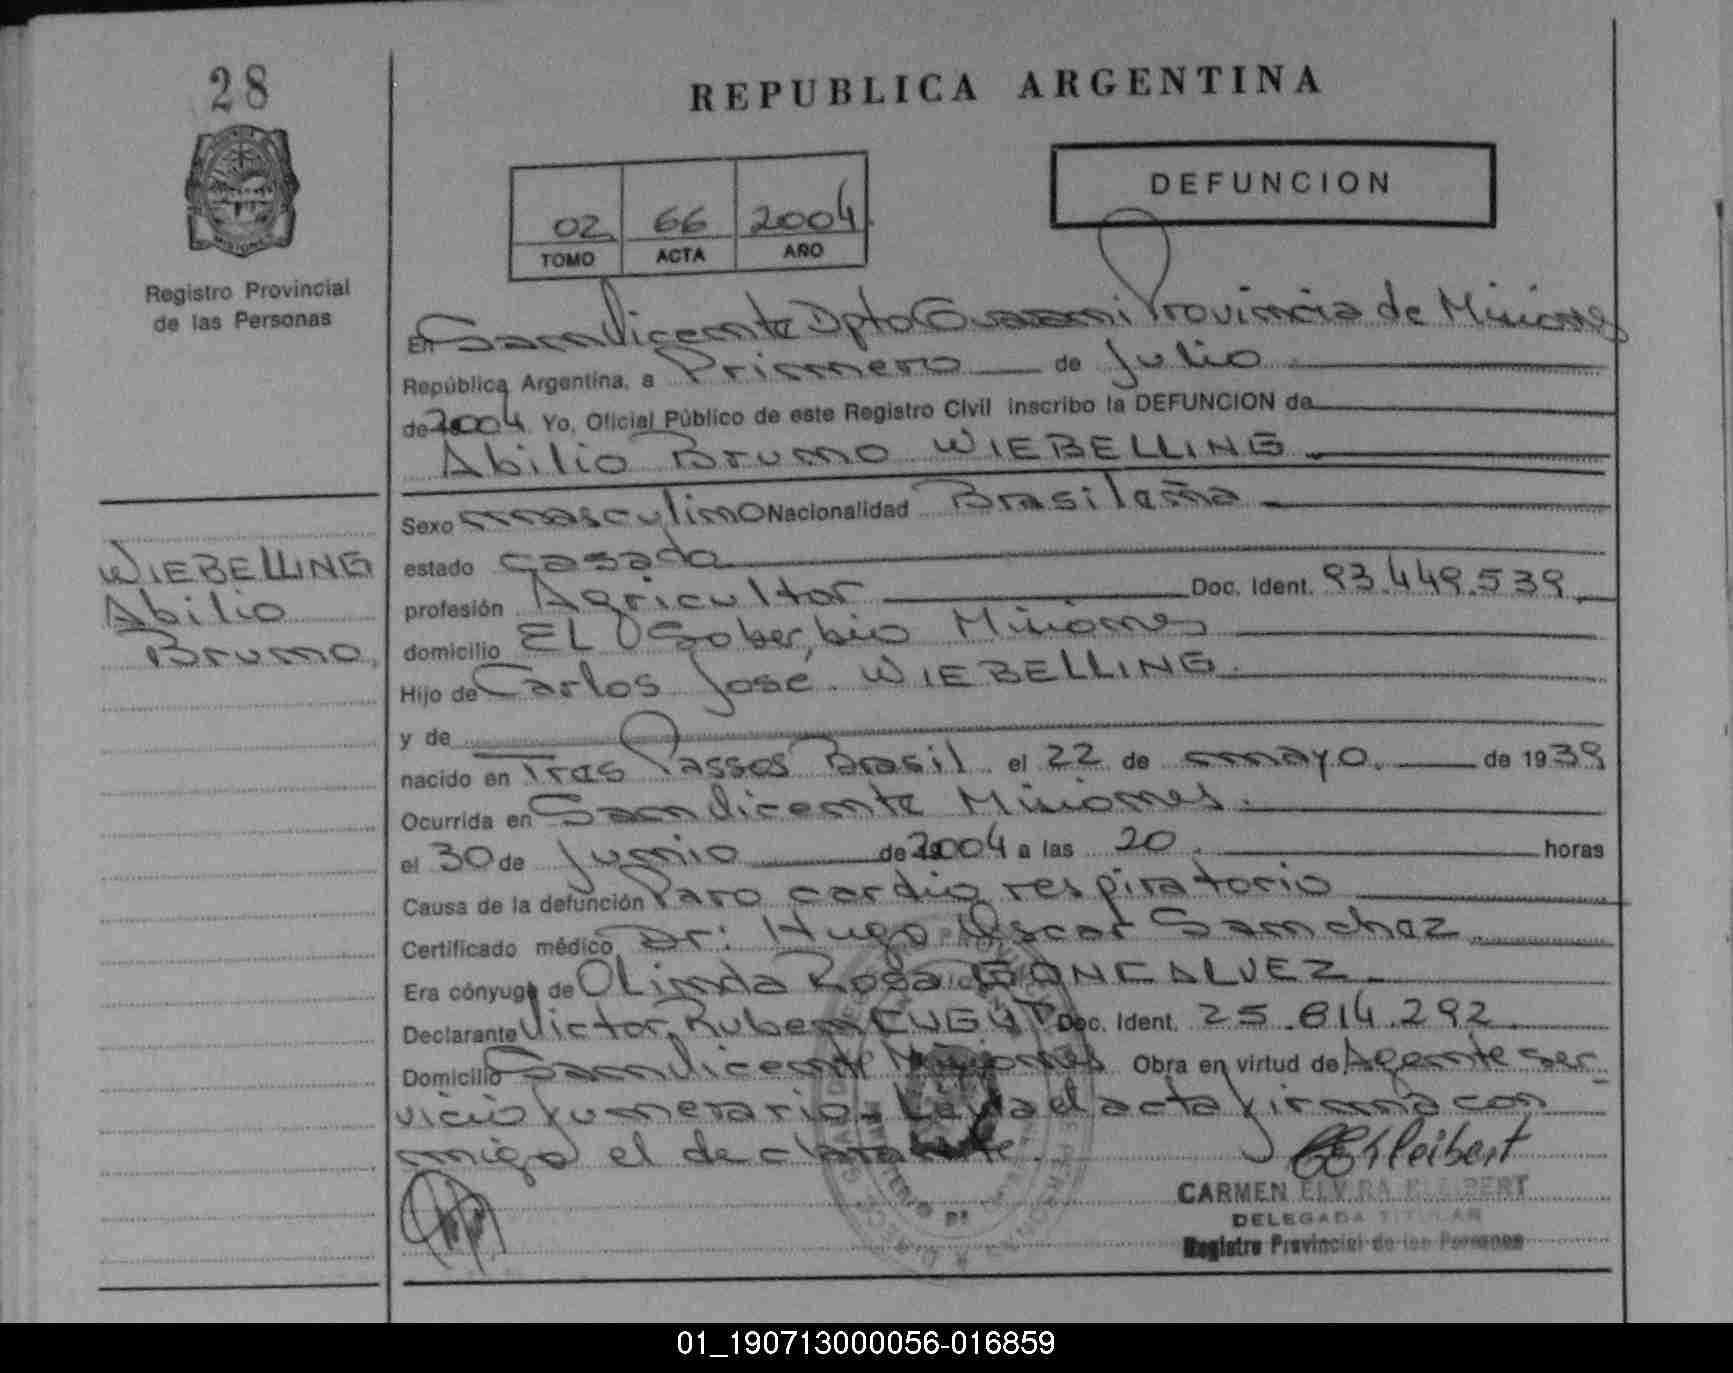 28
REPUBLICA ARGENTINA
DEFUNCION
02 66 2004
TOMO ACTA AÑO
Registro Provincial
de las Personas
En San Vicente Dpto Guaraní Provincia de Misiones
República Argentina, a Primero de Julio
de 2004 Yo, Oficial Público de este Registro Civil inscribo la DEFUNCION de
Abilio Bruno WIEBELLING
Sexo masculino Nacionalidad Brasileña
WIEBELLING
Abilio
Bruno
estado casado
profesión Agricultor Doc. Ident. 93.449.539
domicilio EL Soberbio Misiones
Hijo de Carlos José WIEBELLING.
y de
nacido en Tras Passos Brasil el 22 de mayo de 1939
Ocurrida en San Vicente Misiones.
el 30 de Junio de 2004 a las 20 horas
Causa de la defunción Paro cardio respiratorio
Certificado médico Dr: Hugo Oscar Sanchez
Era cónyuge de OLinda Rosa GONCALVEZ
Declarante Victor Ruben Doc. Ident. 25.814.292
Domicilio San Vicente Misiones Obra en virtud de Agente ser-
vicio funerario - Leida el acta firma con
migo el declarante.
CEKleibert
CARMEN ELVIRA KLEIBERT
DELEGADA TITULAR
Registro Provincial de las Personas
01_190713000056-016859